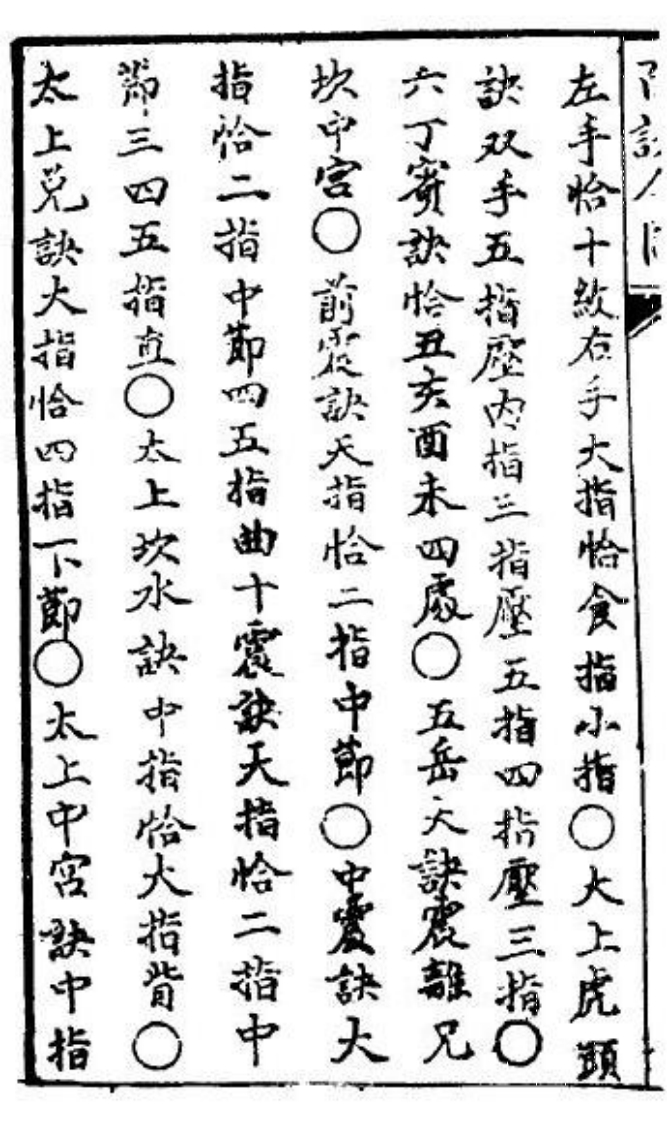 左手恰十紋右手大指恰食指小指○大上虎頭
訣双手五指壓內指三指壓五指四指壓三指○
六丁賓訣恰丑亥酉未四處○五岳天訣震離兄
坎中宮○前震訣天指恰二指中節○中震訣大
指恰二指中節四五指曲十震訣天指恰二指中
節三四五指直○太上坎水訣中指恰大指背○
太上兑訣大指恰四指下節○太上中宮訣中指